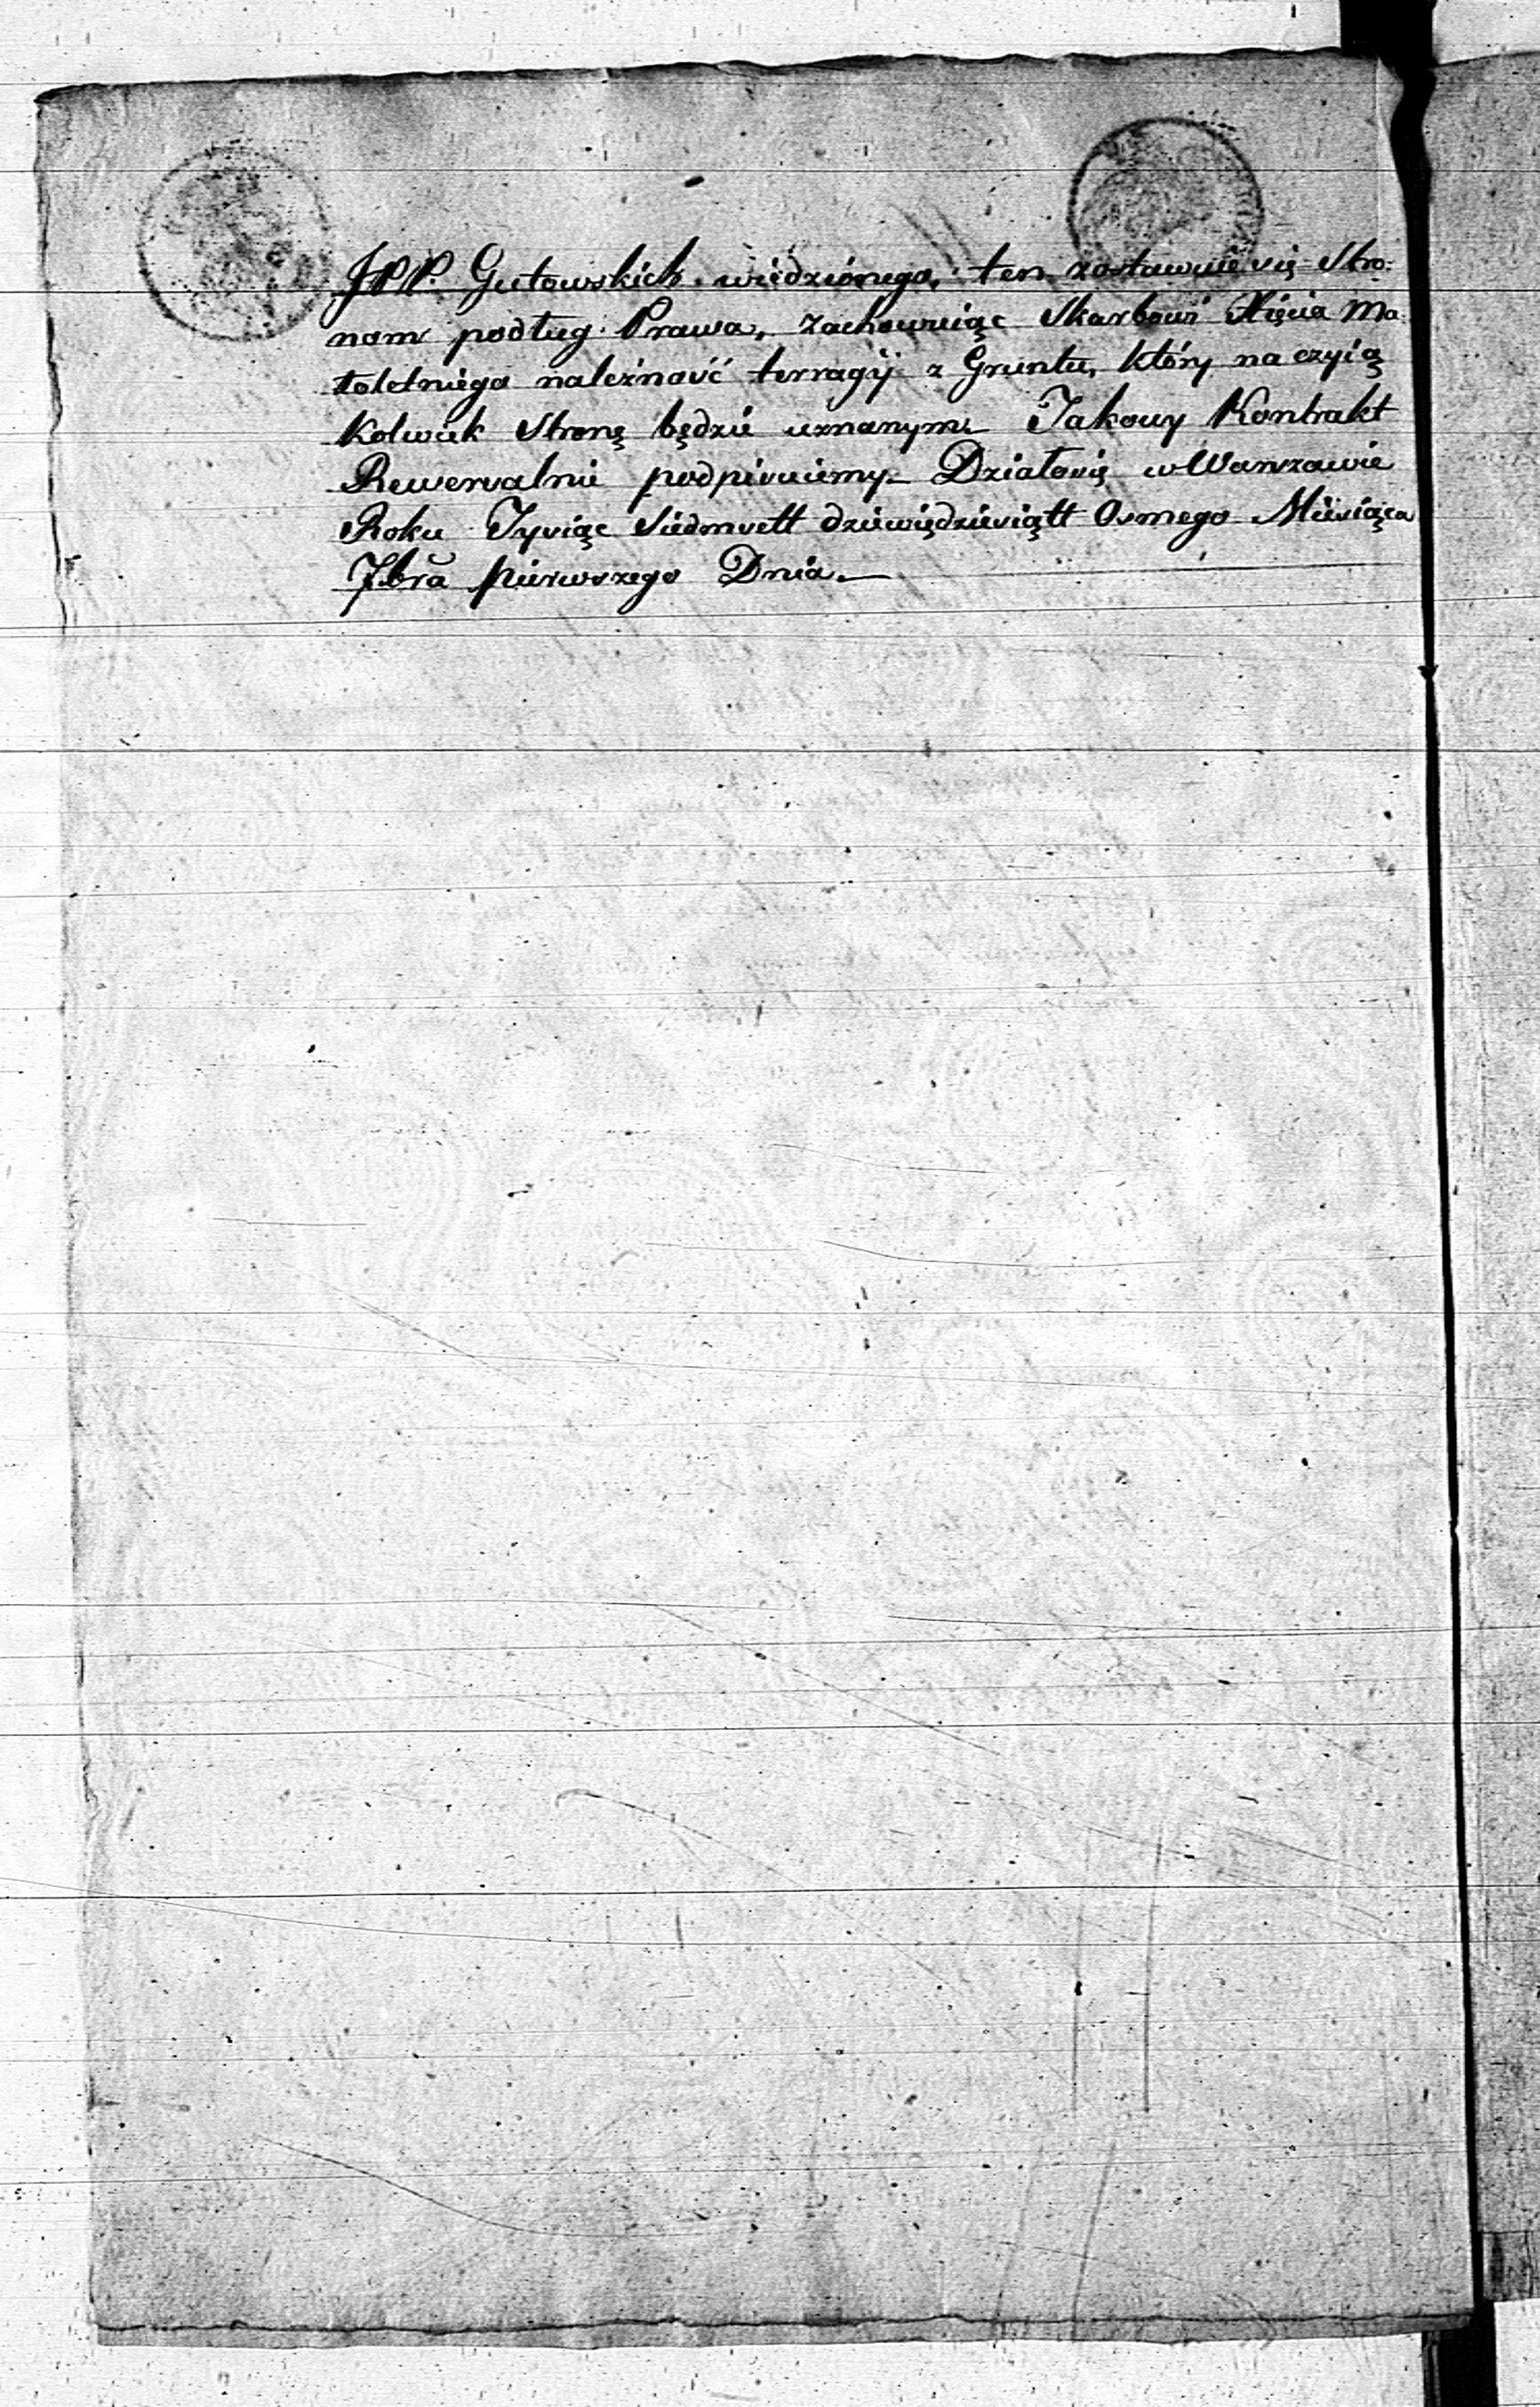 JPP. Gutowskich wiedzionego, ten zostawuie się Stro:
nom podług Prawa, zachowuiąc Skarbowi Xięcia Ma:
łoletniego należność terragij z Gruntu, który na czyią
kolwiek Stronę będzie uznanym. Jakowy Kontrakt
Rewersalnie podpisuiemy. Działosię w Warszawie
Roku Tysiąc Siedmsett dziewiędziesiątt Osmego Miesiąca
7bra pierwszego Dnia.